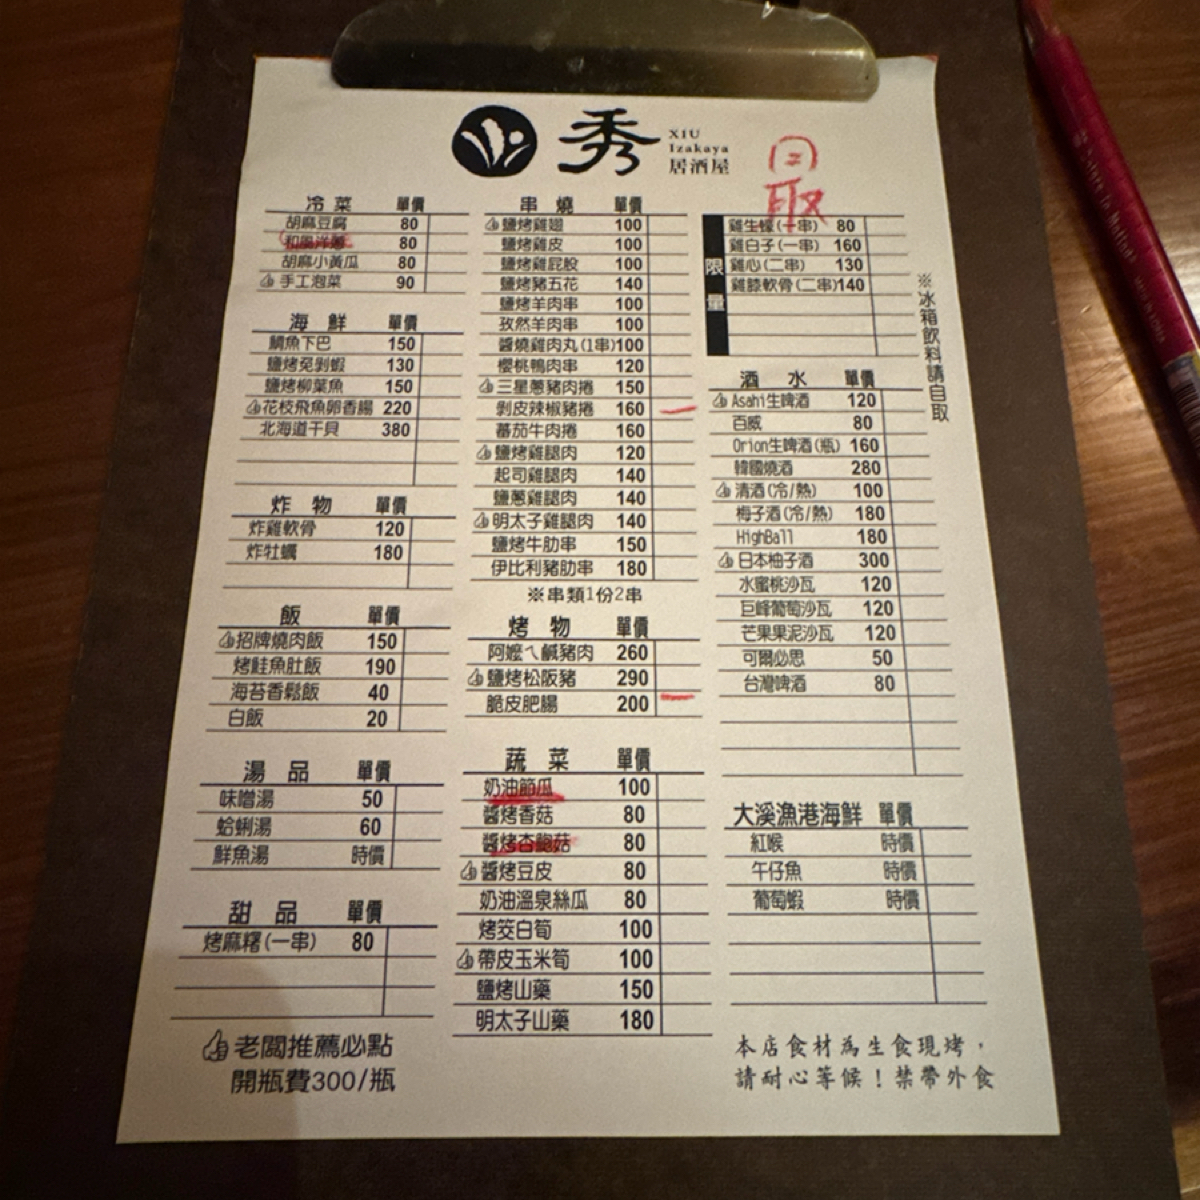 秀
XIU
Izakaya
居酒屋
取
冷菜 單價
胡麻豆腐 80
和風洋蔥 80
胡麻小黃瓜 80
手工泡菜 90
海鮮 單價
鯛魚下巴 150
鹽烤免剝蝦 130
鹽烤柳葉魚 150
花枝飛魚卵香腸 220
北海道干貝 380
炸物 單價
炸雞軟骨 120
炸牡蠣 180
飯 單價
招牌燒肉飯 150
烤鮭魚肚飯 190
海苔香鬆飯 40
白飯 20
湯品 單價
味噌湯 50
蛤蜊湯 60
鮮魚湯 時價
甜品 單價
烤麻糬(一串) 80
老闆推薦必點
開瓶費300/瓶
串燒 單價
鹽烤雞翅 100
鹽烤雞皮 100
鹽烤雞屁股 100
鹽烤豬五花 140
鹽烤羊肉串 100
孜然羊肉串 100
醬燒雞肉丸(1串)100
櫻桃鴨肉串 120
三星蔥豬肉捲 150
剝皮辣椒豬捲 160
蕃茄牛肉捲 160
鹽烤雞腿肉 120
起司雞腿肉 140
鹽蔥雞腿肉 140
明太子雞腿肉 140
鹽烤牛肋串 150
伊比利豬肋串 180
※串類1份2串
烤物 單價
阿嬤ㄟ鹹豬肉 260
鹽烤松阪豬 290
脆皮肥腸 200
蔬菜 單價
奶油節瓜 100
醬烤香菇 80
醬烤杏鮑菇 80
醬烤豆皮 80
奶油溫泉絲瓜 80
烤筊白筍 100
帶皮玉米筍 100
鹽烤山藥 150
明太子山藥 180
限量
雞生蠔(一串) 80
雞白子(一串) 160
雞心(二串) 130
雞膝軟骨(二串)140
※冰箱飲料請自取
酒水 單價
Asahi生啤酒 120
百威 80
Orion生啤酒(瓶) 160
韓國燒酒 280
清酒(冷/熱) 100
梅子酒(冷/熱) 180
HighBall 180
日本柚子酒 300
水蜜桃沙瓦 120
巨峰葡萄沙瓦 120
芒果果泥沙瓦 120
可爾必思 50
台灣啤酒 80
大溪漁港海鮮 單價
紅喉 時價
午仔魚 時價
葡萄蝦 時價
本店食材為生食現烤，
請耐心等候！禁帶外食